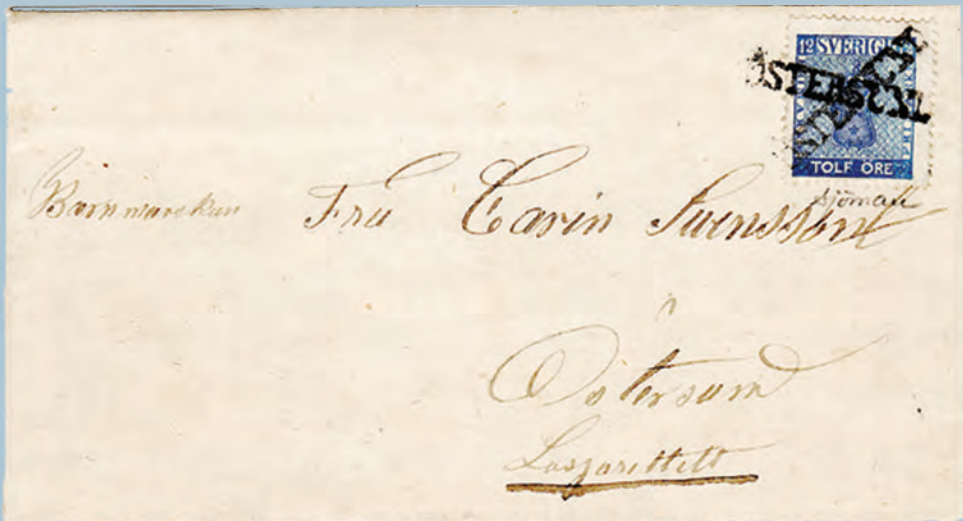 12 SVERIGE
ÖSTERSUN
TOLF ÖRE
sjöman
Barnmorskan Fru Carin Svensson
Östersund
Lasarettett